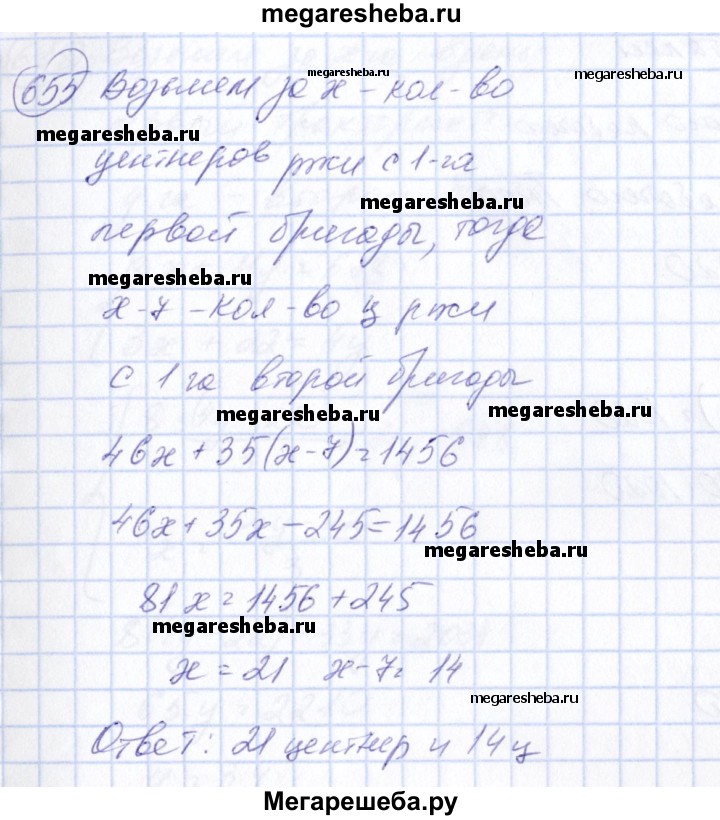 megaresheba.ru
655 Возьмем за x - кол-во
megaresheba.ru
megaresheba.ru
megaresheba.ru
центнеров ржи с 1-га
megaresheba.ru
первой бригады, тогда
megaresheba.ru
x-7 - кол-во ц ржи
с 1 га второй бригады
megaresheba.ru
megaresheba.ru
46x + 35(x-7) = 1456
46x + 35x - 245 = 1456
megaresheba.ru
81x = 1456 + 245
megaresheba.ru
x = 21 x-7 = 14
megaresheba.ru
Ответ: 21 центнер и 14 ц
Мегарешеба.ру